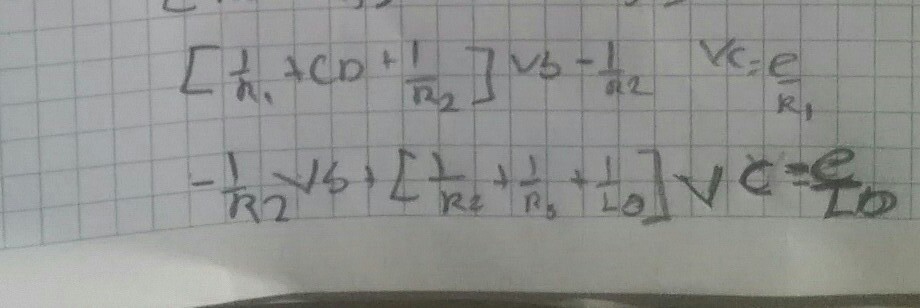 [1/R1 + CD + 1/R2] Vb - 1/R2 Vc = e/R1
-1/R2 Vb + [1/R2 + 1/R3 + 1/LD] Vc = e/LD